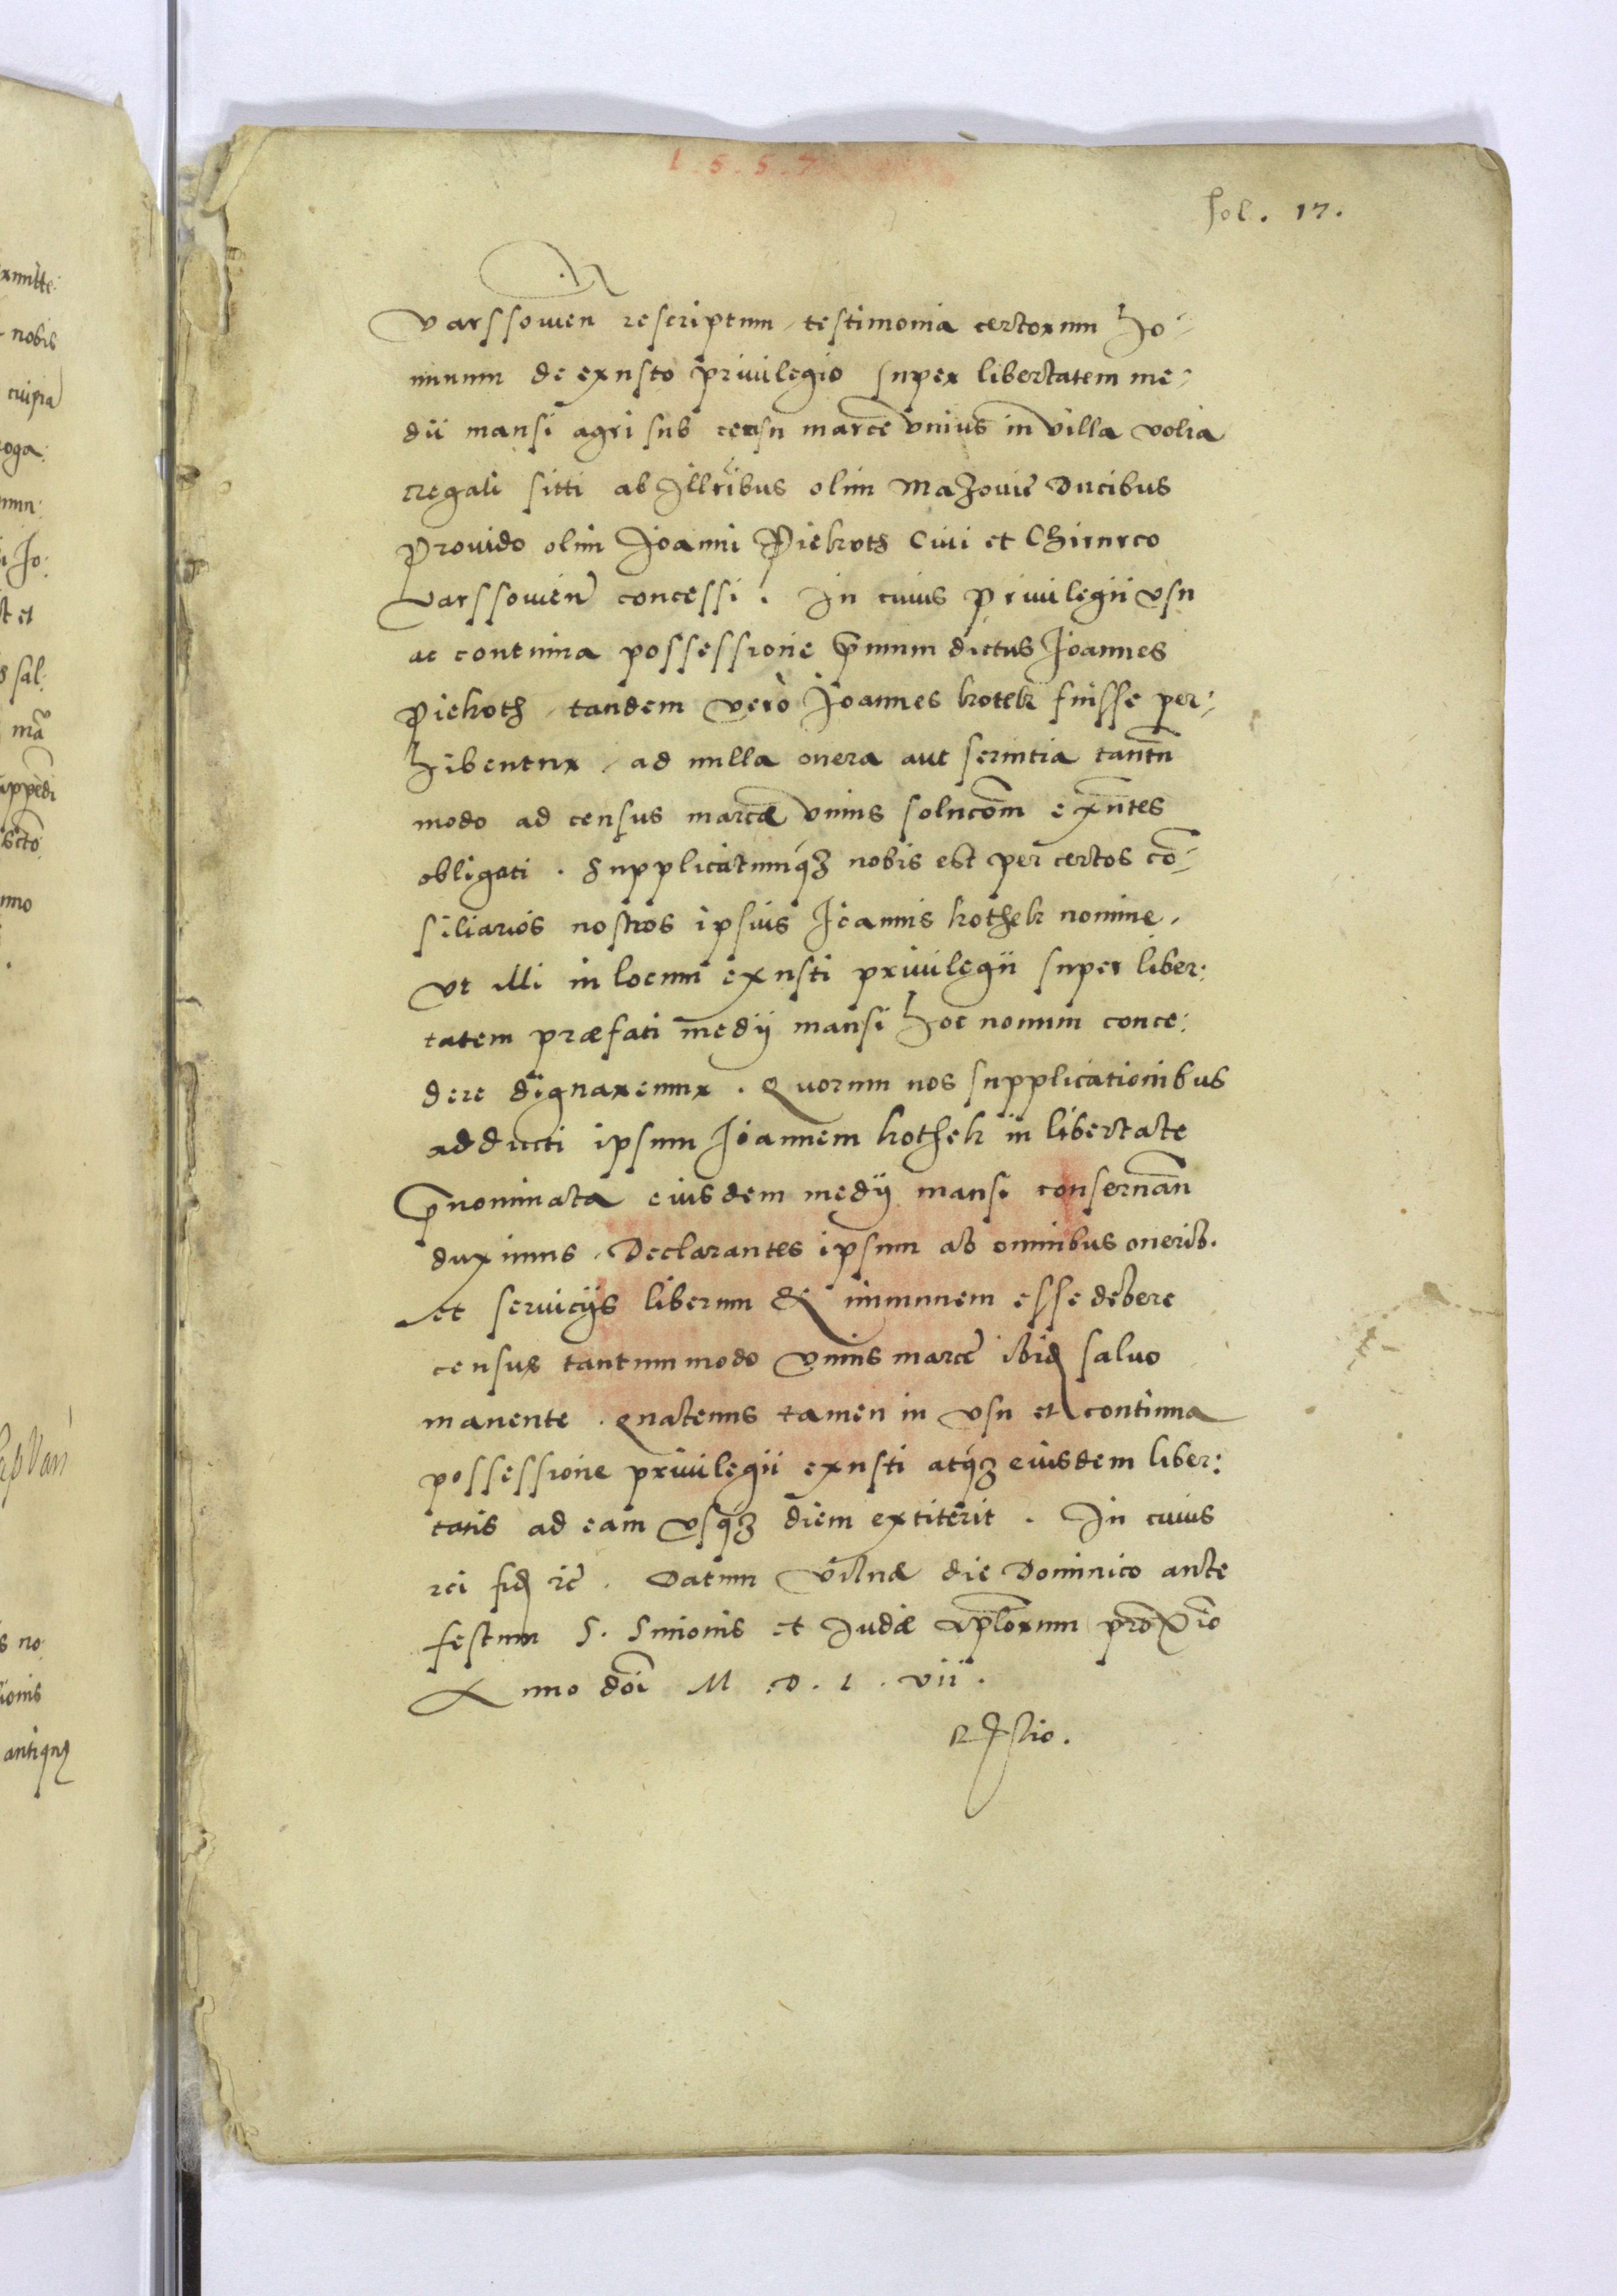 1 . 5 . 5 . 7
fol. 17.
Varssowien̄ rescriptum, testimonia certorum ho-
minum de exusto privilegio super libertatem me-
dii mansi agri sub censu marcę unius in villa Volia
regali sitti ab Illribus olim Mazovię Ducibus
Provido olim Joanni Piekoth Civi et Chirurco
Varssovien̄ concessi. In cuius privilegii usu
ac continua possessione p̄mum dictus Joannes
Piekoth, tandem verò Joannes kotek fuisse per-
hibentur, ad nulla onera aut servitia tantū
modo ad census marcæ unius solucōm exn̄tes
obligati. Supplicatumq́ꝫ nobis est per certos cō-
siliarios nostros ipsius Joannis kothek nomine,
ut illi in locum exusti privilegii super liber:
tatem præfati medij mansi hoc novum conce:
dere dignaremur. Quorum nos supplicationibus
adducti ipsum Joannem kothek in libertate
p̄nominata eiusdem medij mansi conservan̄
duximus, Declarantes ipsum ab omnibus onerib.
et servicijs liberum & immunem esse debere
census tantummodo unius marcę ibid salvo
manente. Quatenus tamen in usu et continua
possessione privilegii exusti atq́ꝫ eiusdem liber:
tatis ad eam usq́ꝫ diem extiterit. In cuius
rei fid rc̄. Datum Vilnæ die Dominico ante
festum S. Simonis et Judæ Apl̄orum prox̄io
Anno doī M . D . L . vii.